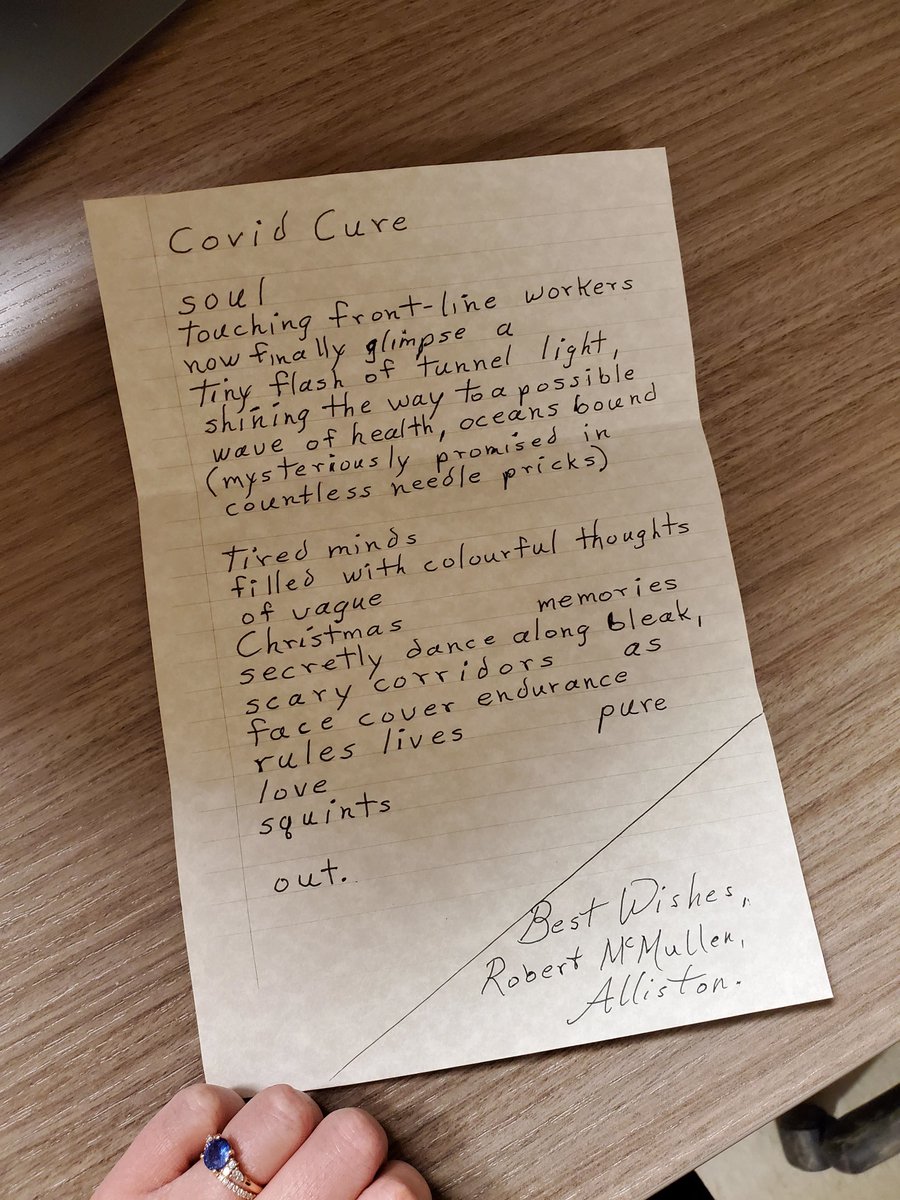 Covid Cure
soul
touching front-line workers
now finally glimpse a
tiny flash of tunnel light,
shining the way to a possible
wave of health, oceans bound
(mysteriously promised in
countless needle pricks)
Tired minds
filled with colourful thoughts
of vague
Christmas memories
secretly dance along bleak,
scary corridors as
face cover endurance
rules lives pure
love
squints
out.
Best Wishes,
Robert McMullen,
Alliston.